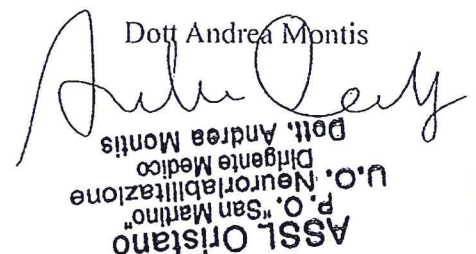 Dott Andrea Montis
ASSL Oristano
P.O. "San Martino"
U.O. Neuroriabilitazione
Dirigente Medico
Dott. Andrea Montis